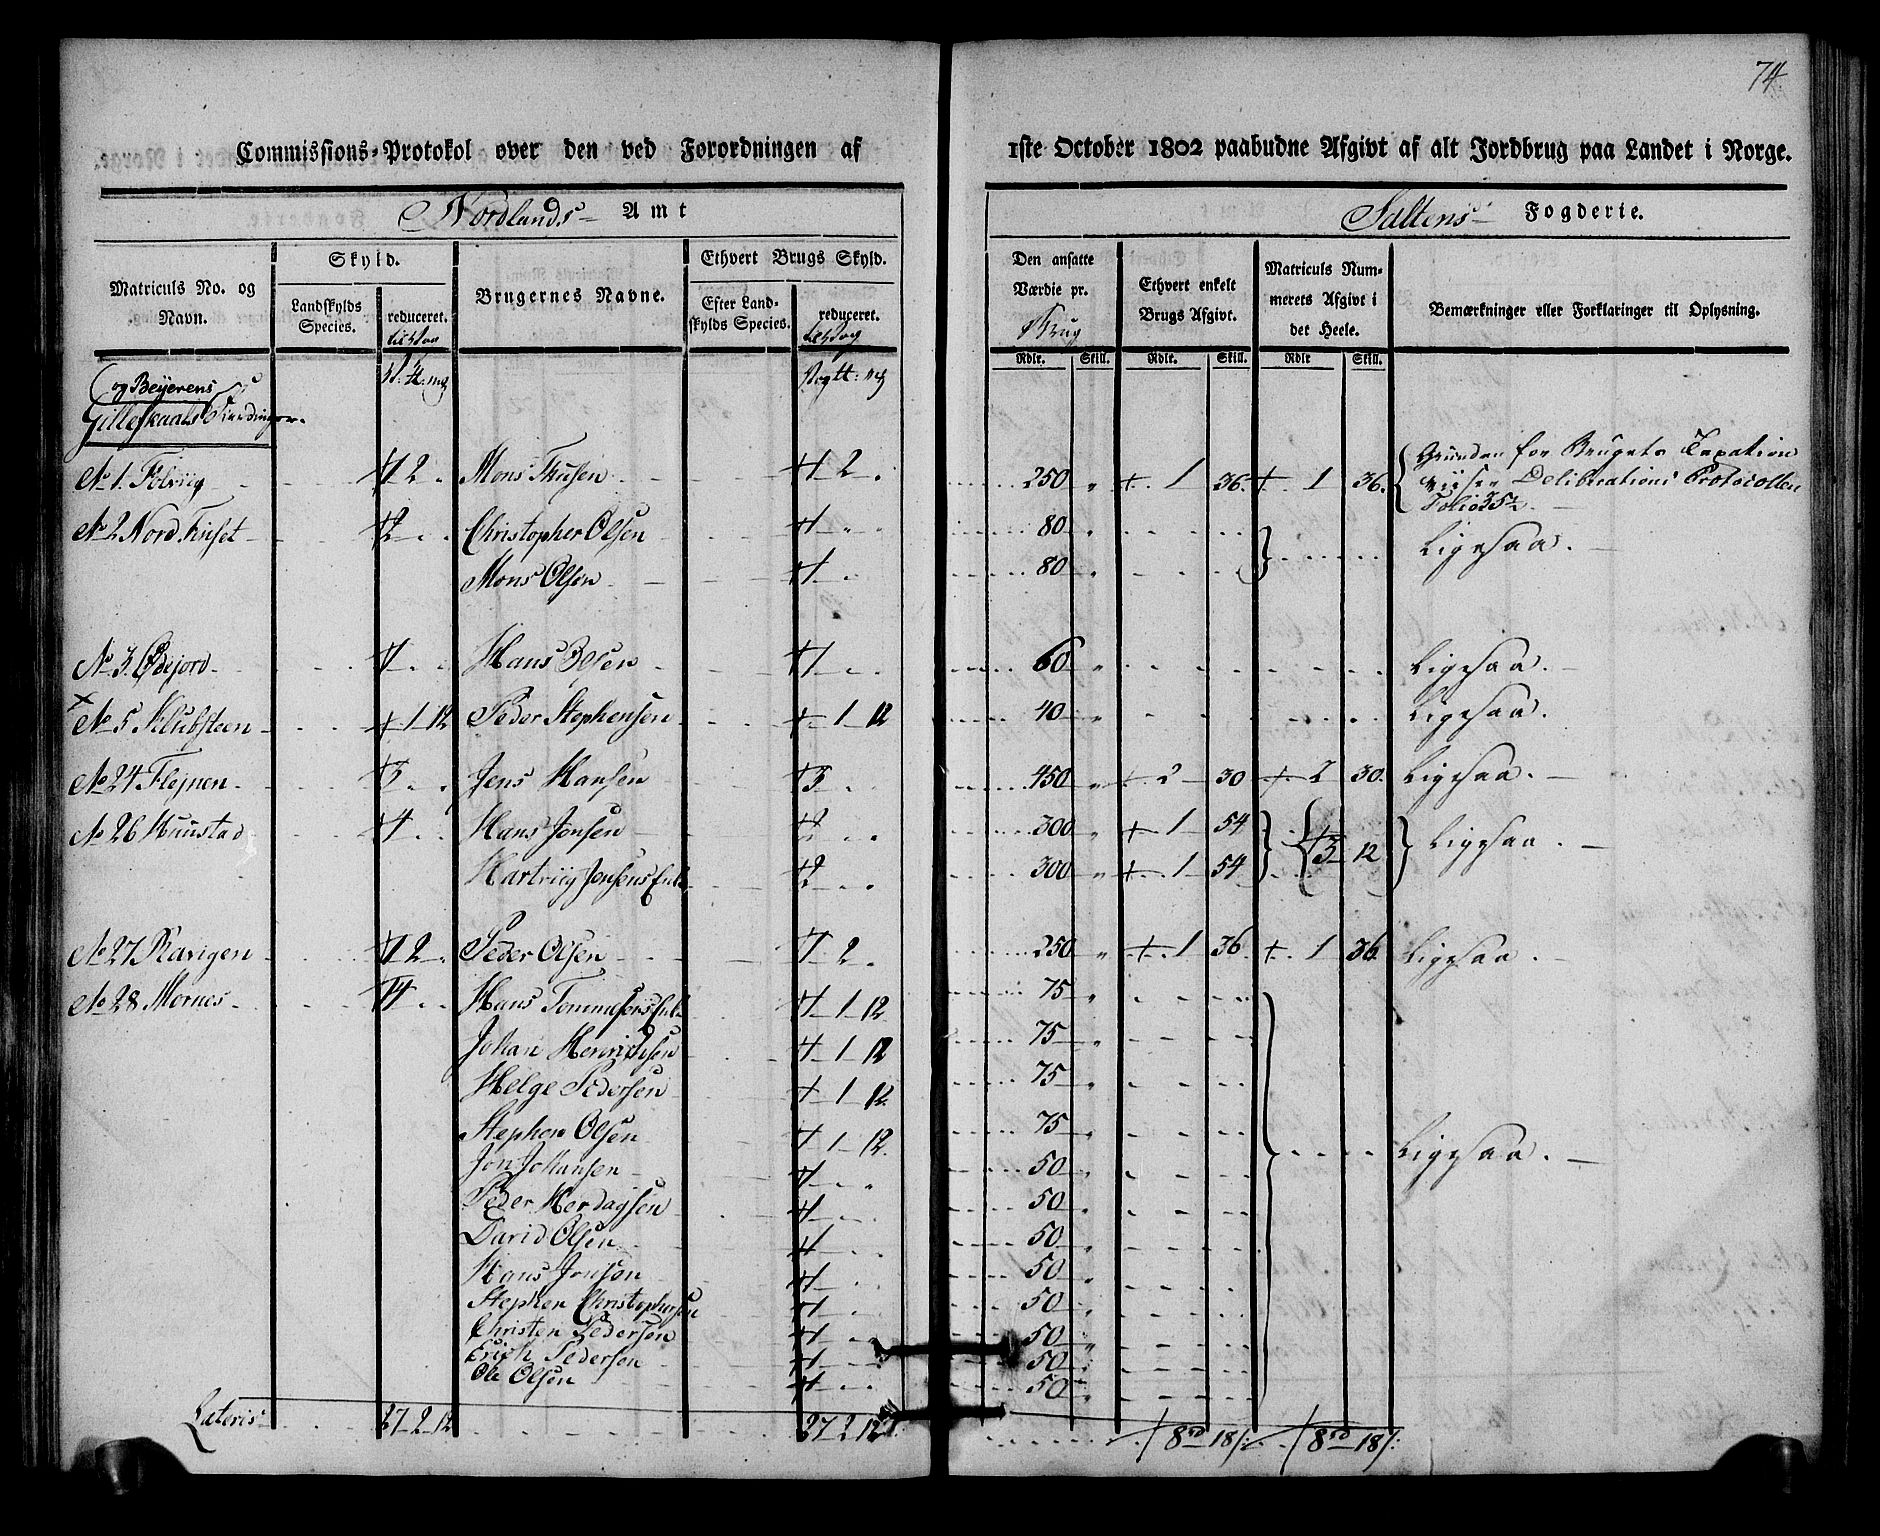 74
Commissions-Protokol over den ved Forordningen af 1ste October 1802 paabudne Afgivt af alt Jordbrug paa Landet i Norge.
Nordlands Amt
Saltens Fogderie.
Matriculs No. og Navn.
Skyld.
Landskylds Species.
reduceret.
Brugernes Navne.
Ethvert Brugs Skyld.
Efter Landskylds Species.
reduceret.
Den ansatte Værdie pr. Brug
Ethvert enkelt Brugs Afgivt.
Matriculs Nummerets Afgivt i det Heele.
Bemærkninger eller Forklaringer til Oplysning.
Rdlr. Skill. Rdlr. Skill. Rdlr Skill.
og Beijerens
Gilleskaals
No 1. Folviig 1 2 . Mons 1 2 . 250 1 36. 1 36. Grunden for Brugets Taxation
viiser Deliberations Protocollen
Folio 35
No 2 Nord Finset 2 . . Christopher Olsen 1 80 Ligesaa.
Mons Olsen 1 80
No 3. Ødejord 1 . . Hans Olsen 1 60 Ligesaa.
No 5 Klubsteen 1 12 Peder Stephensen 1 12 40 Ligesaa.
No 24 Flejnen 3 . . Jens Hansen 3 . . 450 2 30 2 30. Ligesaa.
No 26 Kunstad 4 . . Hans Jonsen 2 . . 300 1 54 3 12 Ligesaa.
Hartviig Jonsens Enke 2 . . 300 1 54
No 27 Ravigen 1 2 . Peder Olsen 1 2 . 250 1 36 1 36 Ligesaa.
No 28 Mornes 14 . . Hans 1 12 75
Johan Henrichsen 1 12 75
Helge Pedersen 1 12 75
Stephen Olsen 1 12. 75 Ligesaa.
Jon Johansen 1 50
Peder Herdagsen 1 50
David Olsen 1 50
Hans Jonsen 1 50
Stephen Christophersen 1 50
Christen Pedersen 1 50
Erich Pedersen 1 50
Ole Olsen 1 50
Lateris 27 2 12 27 2 12 8 rd 18 s: 8 rd 18 s: